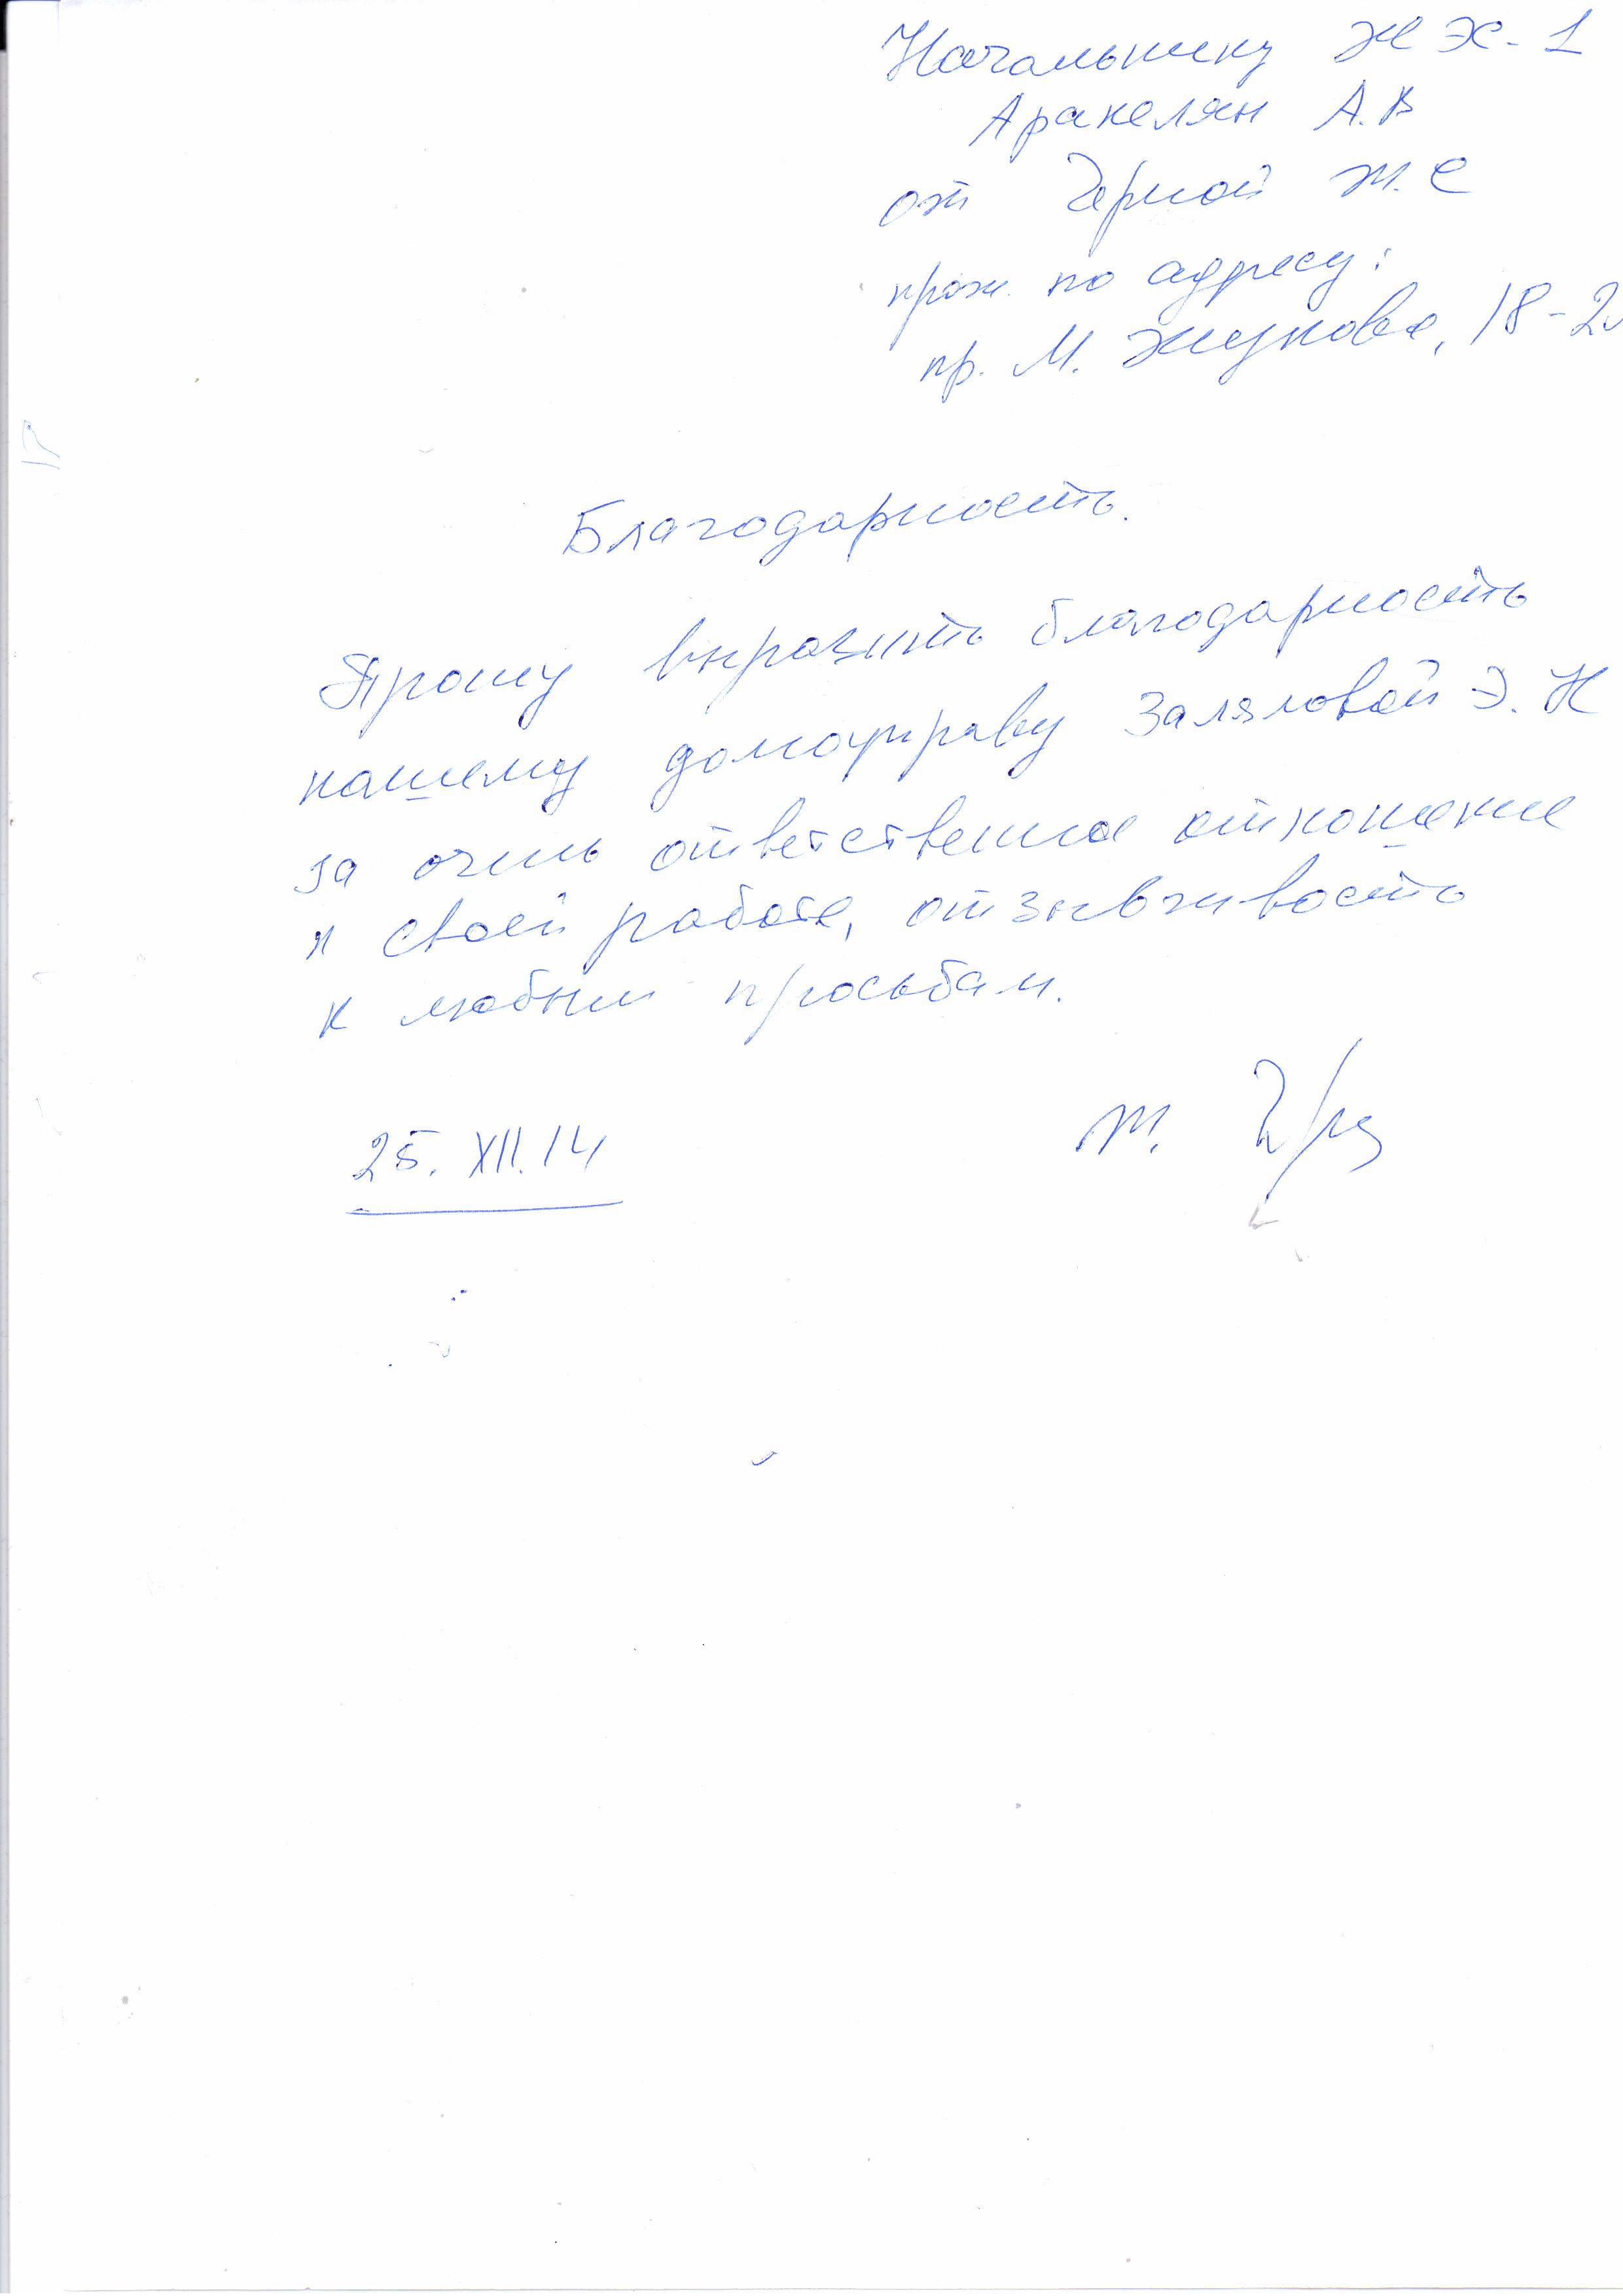 Начальнику ЖЭХ-1
Аракелян А.В
от Черной Ж.С
прож. по адресу:
пр. М. Жукова, 18-2
Благодарность.
Прошу выразить благодарность
нашему домоуправу Заляловой Э. Н
за очень ответственное отношение
к своей работе, отзывчивость
к любым просьбам.
25.XII.14